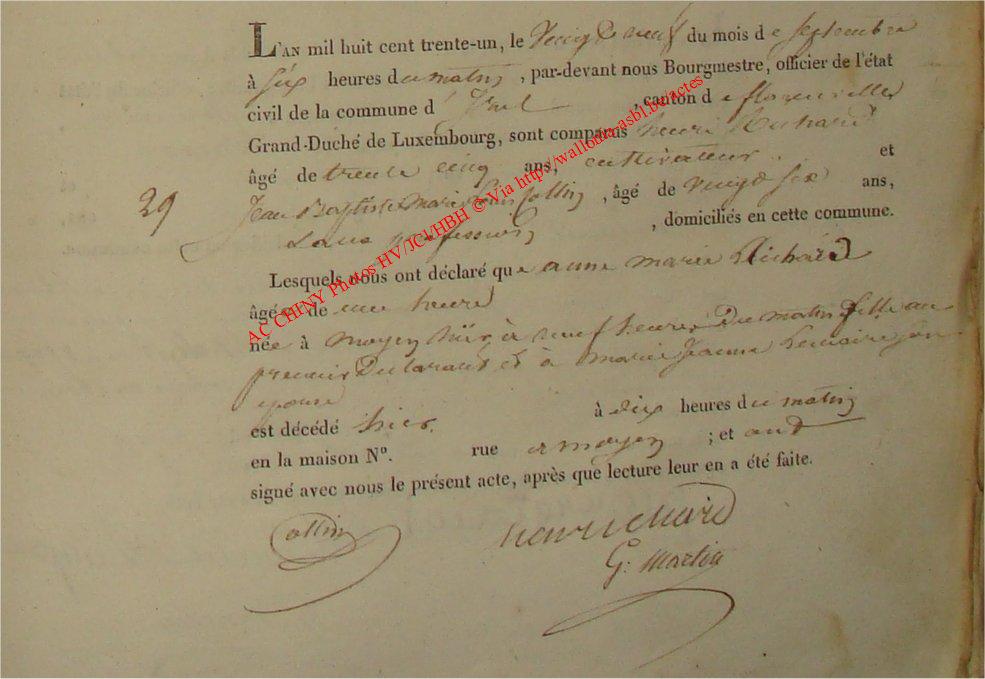 L'AN mil huit cent trente-un, le vingt neuf du mois de septembre
à six heures du matin, par-devant nous Bourgmestre, officier de l'état
civil de la commune d'Izel, canton de florenville
Grand-Duché de Luxembourg, sont comparus henri Richard
âgé de trente cinq ans, cultivateur. et
29
Jean Baptiste marie Louis Collin, âgé de vingt six ans,
sans profession, domiciliés en cette commune.
Lesquels nous ont déclaré que anne marie Richard
âgée de une heure
née à moyen hier à neuf heures du matin fille au
premier Declarant et à marie Jeanne Lemaire son
epouse
est décédé hier. à dix heures du matin
en la maison N°. rue a moyen ; et ont
signé avec nous le présent acte, après que lecture leur en a été faite.
Collin
henri richard
G. Martin
AC CHINY Photos HV/JCL/HBH © Via http://walloara.asbl.be/actes